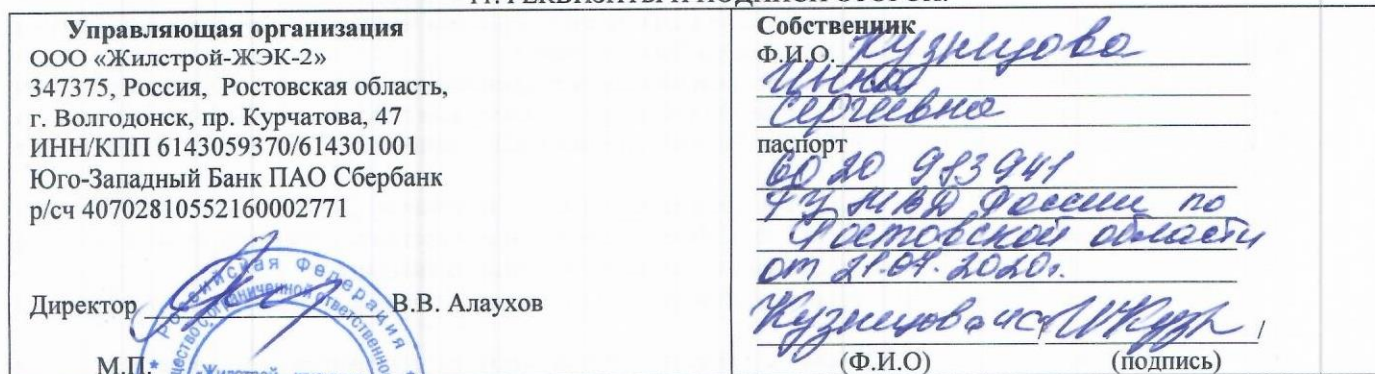 Управляющая организация
ООО «Жилстрой-ЖЭК-2»
347375, Россия, Ростовская область,
г. Волгодонск, пр. Курчатова, 47
ИНН/КПП 6143059370/614301001
Юго-Западный Банк ПАО Сбербанк
р/сч 40702810552160002771
Директор В.В. Алаухов
М.П.
Российская Федерация
Собственник
Ф.И.О. Кузнецова
Инна
Сергеевна
паспорт
60 20
ГУ МВД России по
Ростовской области
от 2020г.
Кузнецова ИС / /
(Ф.И.О) (подпись)